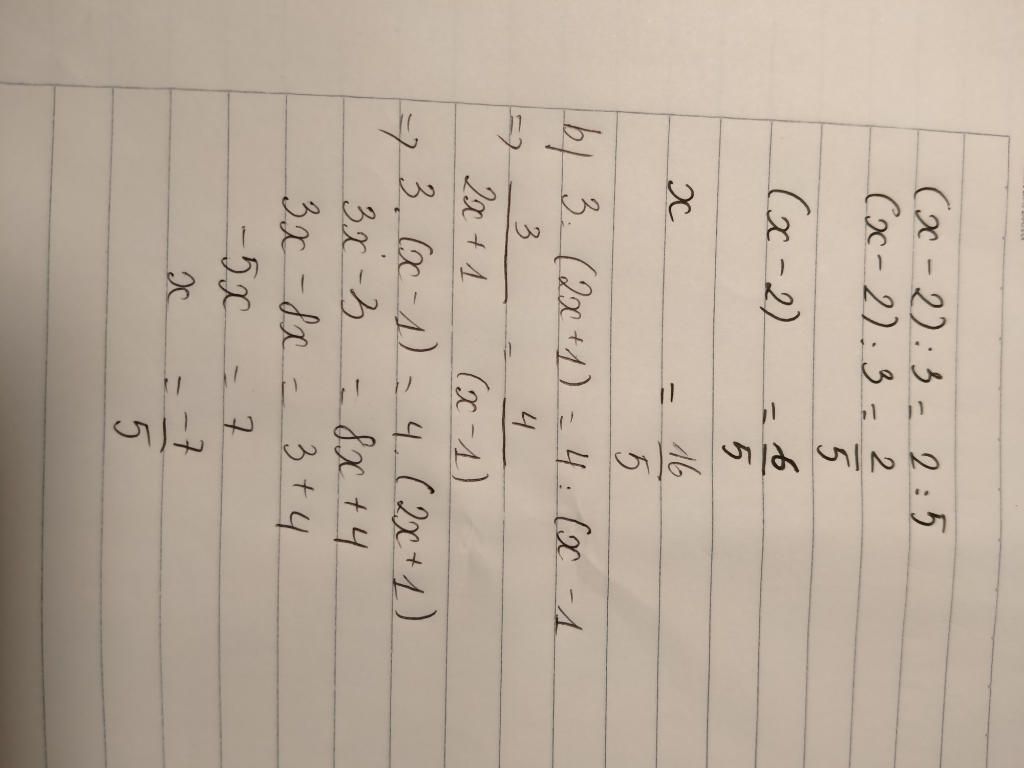 (x - 2) : 3 = 2 : 5
(x - 2) : 3 = 2/5
(x - 2) = 6/5
x = 16/5
b) 3 : (2x + 1) = 4 : (x - 1
=> 3/(2x + 1) = 4/(x - 1)
=> 3 . (x - 1) = 4 . (2x + 1)
3x - 3 = 8x + 4
3x - 8x = 3 + 4
-5x = 7
x = -7/5